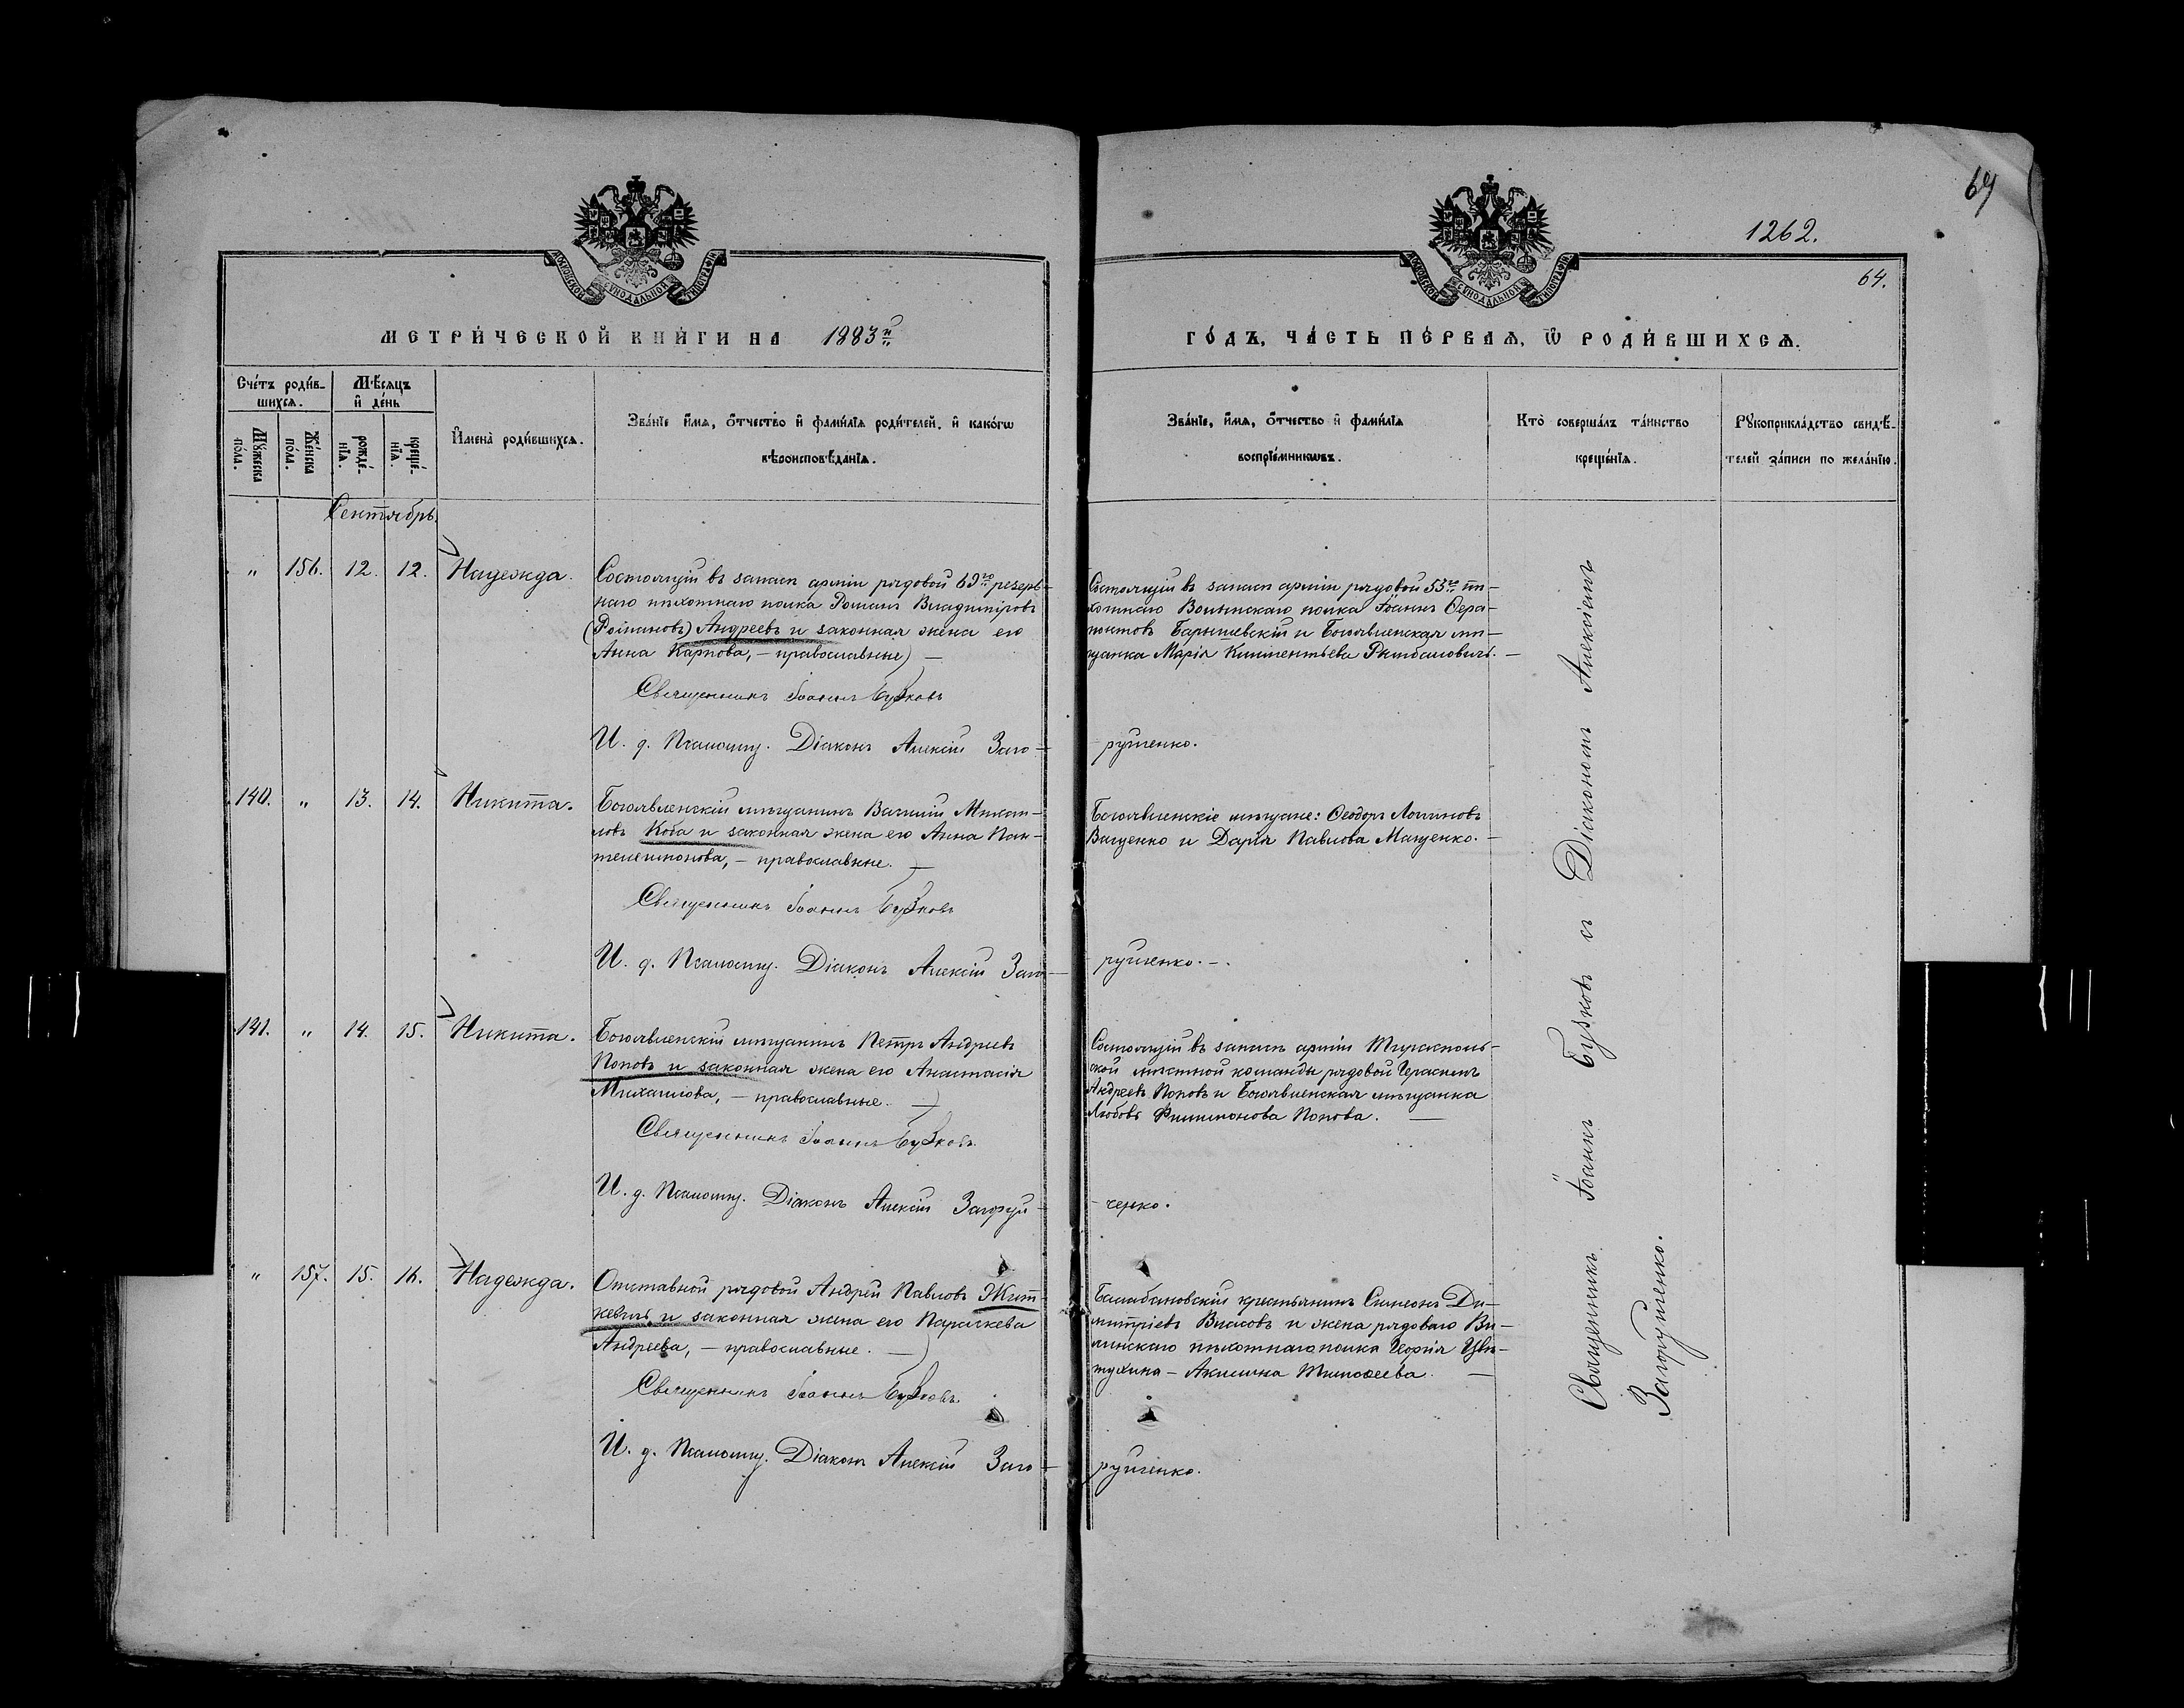 69
1262.
64.
МОСКОВСКОЙ СѴНОДАЛЬНОЙ ТИПОГРАФІИ
МОСКОВСКОЙ СѴНОДАЛЬНОЙ ТИПОГРАФІИ
МЕТРИ́ЧЕСКОЙ КНИ́ГИ НА 1883й
ГО́ДЪ, ЧА́СТЬ ПЕ́РВАЯ, Ѿ РОДИ́ВШИХСЯ.
Сче́тъ роди́в-
шихся.
Мѣ́сяцъ
и де́нь
Му́жеска
по́ла.
Же́нска
по́ла.
рожде́-
нія.
креще́-
нія.
Имена̀ роди́вшихся.
Зва́ніе имя, отчество и фами́лія роди́телей, и како́гѡ
вѣроисповѣ́данія.
Зва́ніе, имя, отчество и фами́лія
воспріе́мниковъ.
Кто̀ соверша́лъ та́инство
креще́нія.
Рукоприкла́дство свидѣ́-
телей за́писи по жела́нію.
Сентябрь
" 156. 12. 12. Надежда.
Состоящій въ запасѣ арміи рядовой 69го резерв-
наго пѣхотнаго полка Романъ Владиміровъ
(Романовъ) Андреевъ и законная жена его
Анна Карпова, – православные)
Священникъ Іоаннъ Бузковъ
И. д. Псаломщ. Діаконъ Алексій Заго-
Состоящій въ запасѣ арміи рядовой 53го пѣ-
хотнаго Волынскаго полка Іоаннъ Ѳера-
понтовъ Барышевскій и Богоявленская мѣ-
щанка Марія Климентьева
руйченко.
140. " 13. 14. Никита.
Богоявленскій мѣщанинъ Василій Михаи-
ловъ Коба и законная жена его Анна Пан-
телеимонова, – православные.
Священникъ Іоаннъ Бузковъ
И. д. Псаломщ. Діаконъ Алексій Заго-
Богоявленскіе мѣщане: Ѳеодоръ Логиновъ
Ващенко и Дарія Павлова Мащенко. –
руйченко. –.
141. " 14. 15. Никита.
Богоявленскій мѣщанинъ Петръ Андреевъ
Поповъ и законная жена его Анастасія
Михаилова, – православные.
Священникъ Іоаннъ Бузковъ
И. д. Псаломщ. Діаконъ Алексій Загоруй-
Состоящій въ запасѣ арміи Тираспольс-
кой мѣстной команды рядовой Герасимъ
Андреевъ Поповъ и Богоявленская мѣщанка
Любовь Филимонова Попова.
ченко.
" 157. 15. 16. Надежда.
Отставной рядовой Андрей Павловъ Жит-
кевичъ и законная жена его Параскева
Андреева, – православные.
Священникъ Іоаннъ Бузковъ
И. д. Псаломщ. Діаконъ Алексій Заго-
Балабановскій крестьянинъ Симеонъ Ди-
митріевъ Власовъ и жена рядоваго Ви-
ленскаго пѣхотнаго полка Георгія Цѣв-
тухина – Акилина Тимоѳеева.
руйченко.
Священникъ Іоаннъ Бузковъ съ Діакономъ Алексіемъ
Загоруйченко.